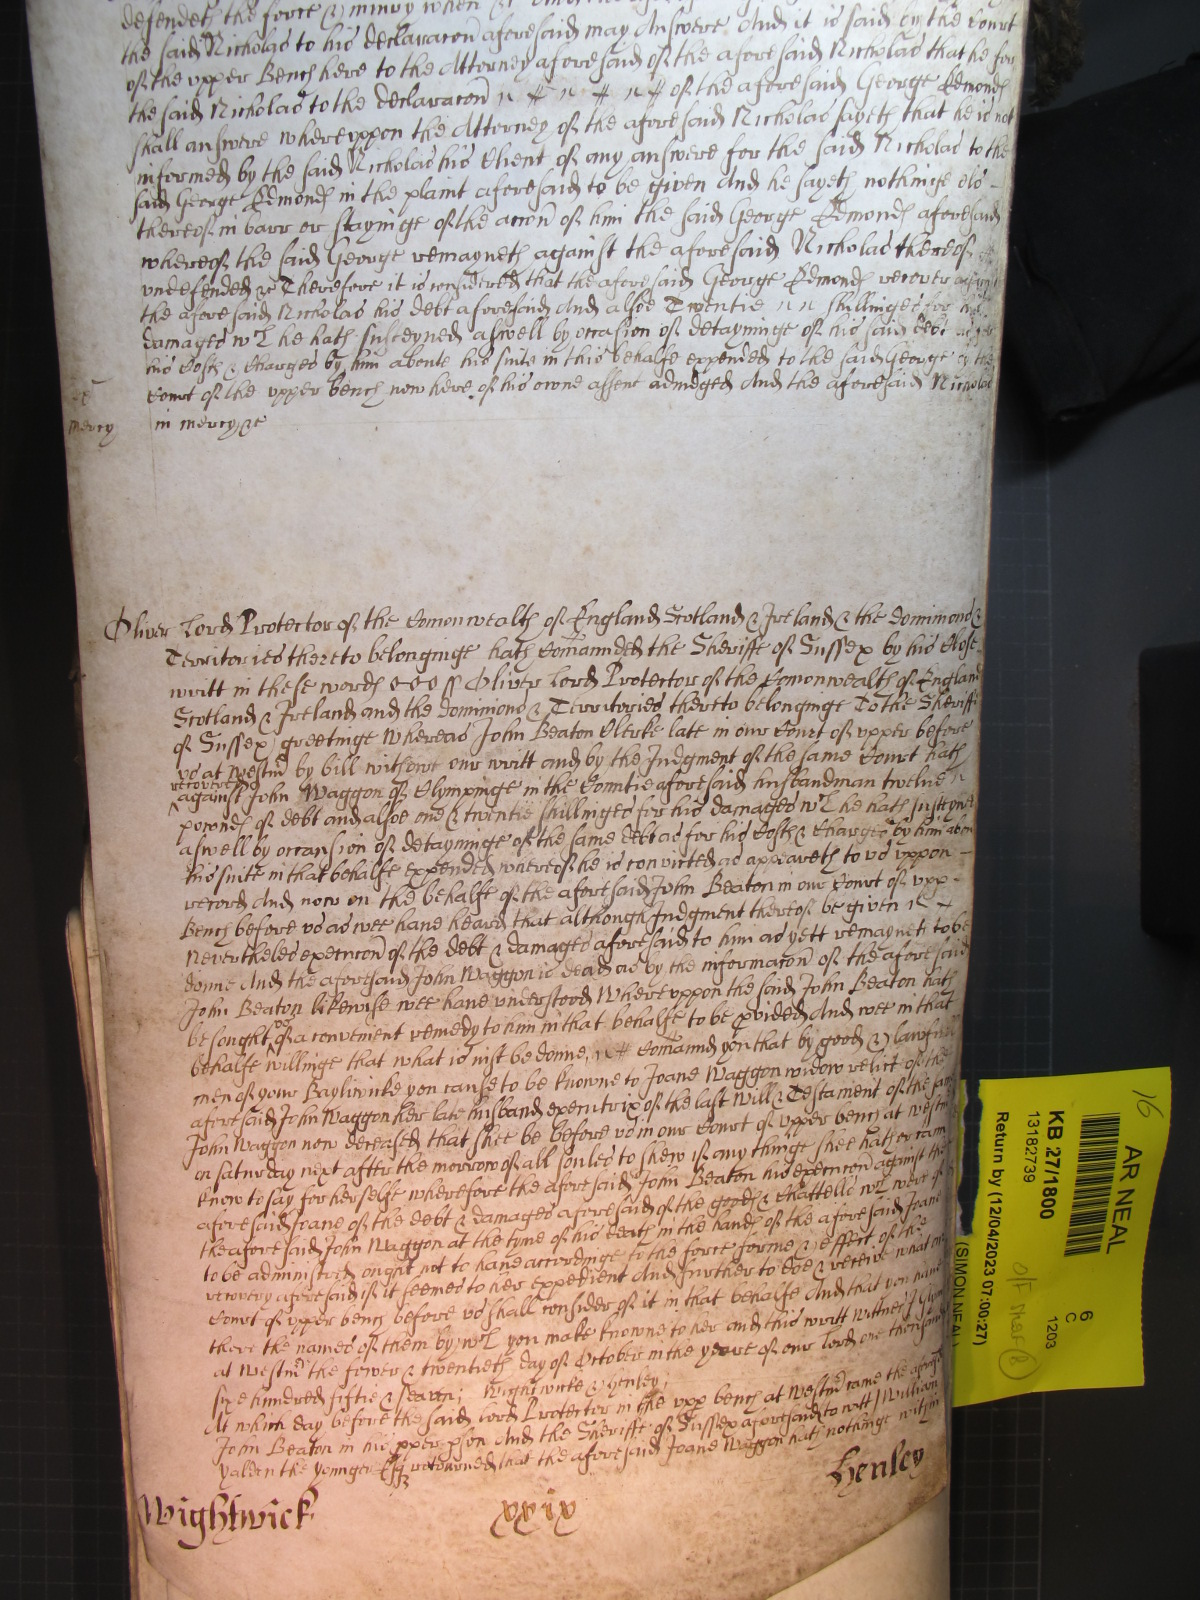 defendeth the force & iniury when &c And
the said Nicholas to his declaracon aforesaid may Answere And it is said by the Court
of the vpper Bench here to the Attorney aforesaid of the aforesaid Nicholas that he for
the said Nicholas to the declaracon n # n # n # of the aforesaid George Edmonds
shall answere wherevppon the Attorney of the aforesaid Nicholas sayeth that he is not
informed by the said Nicholas his Client of any answere for the said Nicholas to the
said George Edmonds in the plaint aforesaid to be given And he sayeth nothinge els –
thereof in barr or stayinge of the accon of him the said George Edmonds aforesaid
whereof the said George remayneth against the aforesaid Nicholas thereof
vndefended &c Therefore it is considered that the aforesaid George Edmonds recover against
the aforesaid Nicholas his debt aforesaid And alsoe Twentie n n shillinges for his
damages wch he hath susteyned aswell by occasion of detayninge of his said debt as for
his Costs & Charges by him aboute his suite in this behalfe expended to the said George by the
Court of the vpper bench now here of his owne assent adiudged And the aforesaid Nicholas
mercy
in mercy &c
Oliver Lord Protector of the Comonwealth of England Scotland & Ireland & the dominions &
Territories thereto belonginge hath Comaunded the Sheriffe of Sussex by his Close
writt in these words ss Oliver Lord Protector of the Comonwealth of England
Scotland & Ireland and the dominions & Territories thereto belonginge To the Sheriffe
of Sussex greetinge Whereas John Beaton Clerke late in our Court of vpper before
vs at Westmr by bill without our writt and by the Judgment of the same Court hath
recovered
against John Waggon of Clympinge in the Countie aforesaid husbandman twelve n
pounds of debt and alsoe one & twentie shillinges for his damages wch he hath susteyned
aswell by occasion of detayninge of the same debt as for his Costs & Charges by him about
his suite in that behalfe expended whereof he is convicted as appeareth to vs vppon –
record And now on the behalfe of the aforesaid John Beaton in our Court of vpp –
Bench before vs as wee haue heard that although Judgment thereof be given
Neverthelesse execucon of the debt & damages aforesaid to him as yett remayneth to be
donne And the aforesaid John Waggon is dead as by the informacon of the aforesaid
John Beaton likewise wee haue vnderstood Wherevppon the said John Beaton hath
besought vs of a convenient remedy to him in that behalfe to be pvided And wee in that
behalfe willinge that what is iust be donne, n # Comaund you that by good & lawfull
men of your Bayliwicke you cause to be knowne to Joane Waggon widow relict of the
aforesaid John Waggon her late husband executrix of the last will & Testament of the said
John Waggon now deceased that shee be before vs in our Court of vpper bench at Westmr
on saturday next after the morrow of all soules to shew if any thinge shee hath or can
know to say for herselfe wherefore the aforesaid John Beaton his execucon against the
aforesaid Joane of the debt & damages aforesaid of the goods & Chattells wch were of
the aforesaid John Waggon at the tyme of his death in the hands of the aforesaid Joane
to be administred ought not to haue accordinge to the force forme & effect of the
recovery aforesaid if it seemes to her expedient And further to doe & receive what our
Court of vpper bench before vs shall consider of it in that behalfe And that you haue
there the names of them by wch you make knowne to her and this writt Wittnes J Glynn
at Westmr the fower & twentieth day of October in the yeare of our Lord one thousand
sixe hundred fiftie & seaven; Wightwicke & Henley;
At which day before the said Lord Protector in the vpp bench at Westmr came the aforesaid
John Beaton in his pper pson And the Sheriffe of Sussex aforesaid to witt William
yalden the younger Esqr retourned that the aforesaid Joane Waggon hath nothinge within
Wightwick
xxix
Henley
16
AR NEAL
6
C
1203
KB 27/1800
13182739
Return by (12/04/2023 07:00:27)
(SIMON NEAL)